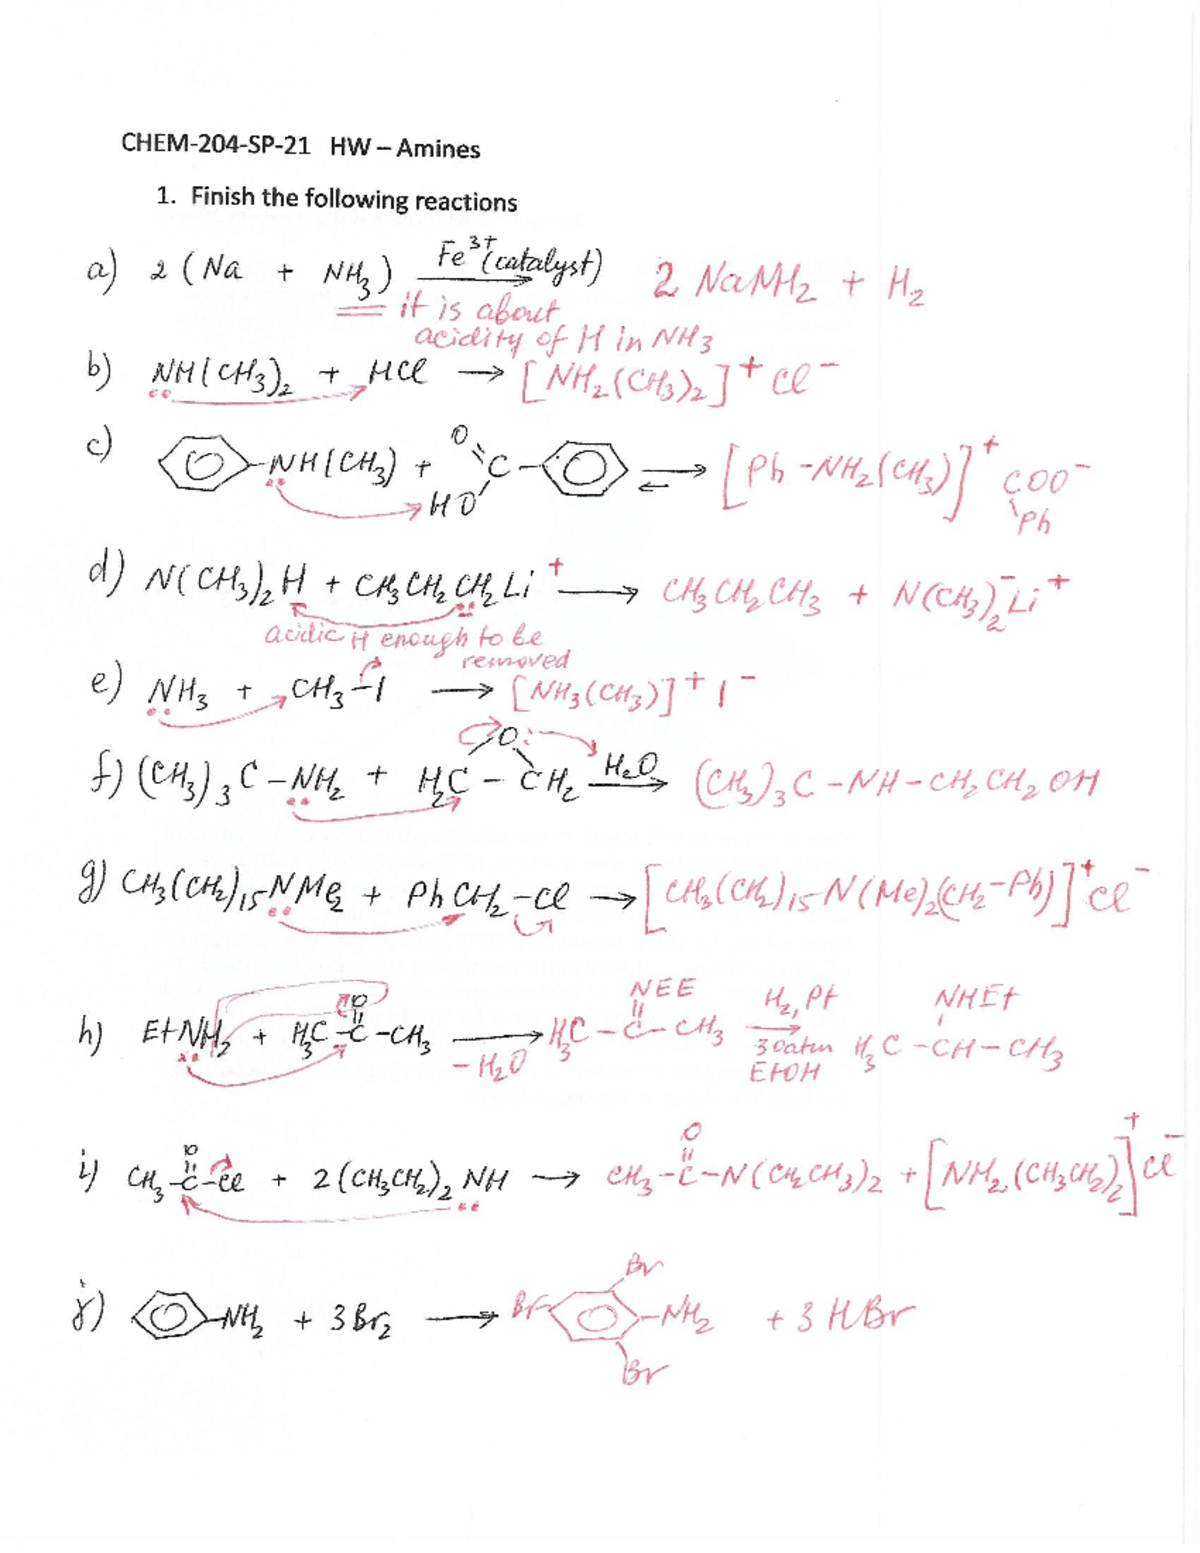 CHEM-204-SP-21 HW – Amines
1. Finish the following reactions
a) 2 (Na + NH3) Fe3+ (catalyst) → 2 NaNH2 + H2
= it is about
acidity of H in NH3
b) NH(CH3)2 + HCl → [NH2(CH3)2]+ Cl-
c) -NH(CH3) + O=C- HO ⇌ [Ph-NH2(CH3)]+ COO-
Ph
d) N(CH3)2H + CH3CH2CH2Li+ → CH3CH2CH3 + N(CH3)2- Li+
acidic H enough to be
removed
e) NH3 + CH3-I → [NH3(CH3)]+ I-
O
f) (CH3)3C-NH2 + H2C-CH2 H2O → (CH3)3C-NH-CH2CH2OH
g) CH3(CH2)15NMe2 + PhCH2-Cl → [CH3(CH2)15-N(Me)2(CH2-Ph)]+ Cl-
O NEE H2, Pt NHEt
h) EtNH2 + H3C-C-CH3 → H3C-C-CH3 → H3C-CH-CH3
-H2O 30atm
EtOH
O O
i) CH3-C-Cl + 2(CH3CH2)2NH → CH3-C-N(CH2CH3)2 + [NH2(CH3CH2)2]+ Cl-
Br
j) -NH2 + 3Br2 → Br -NH2 + 3HBr
Br